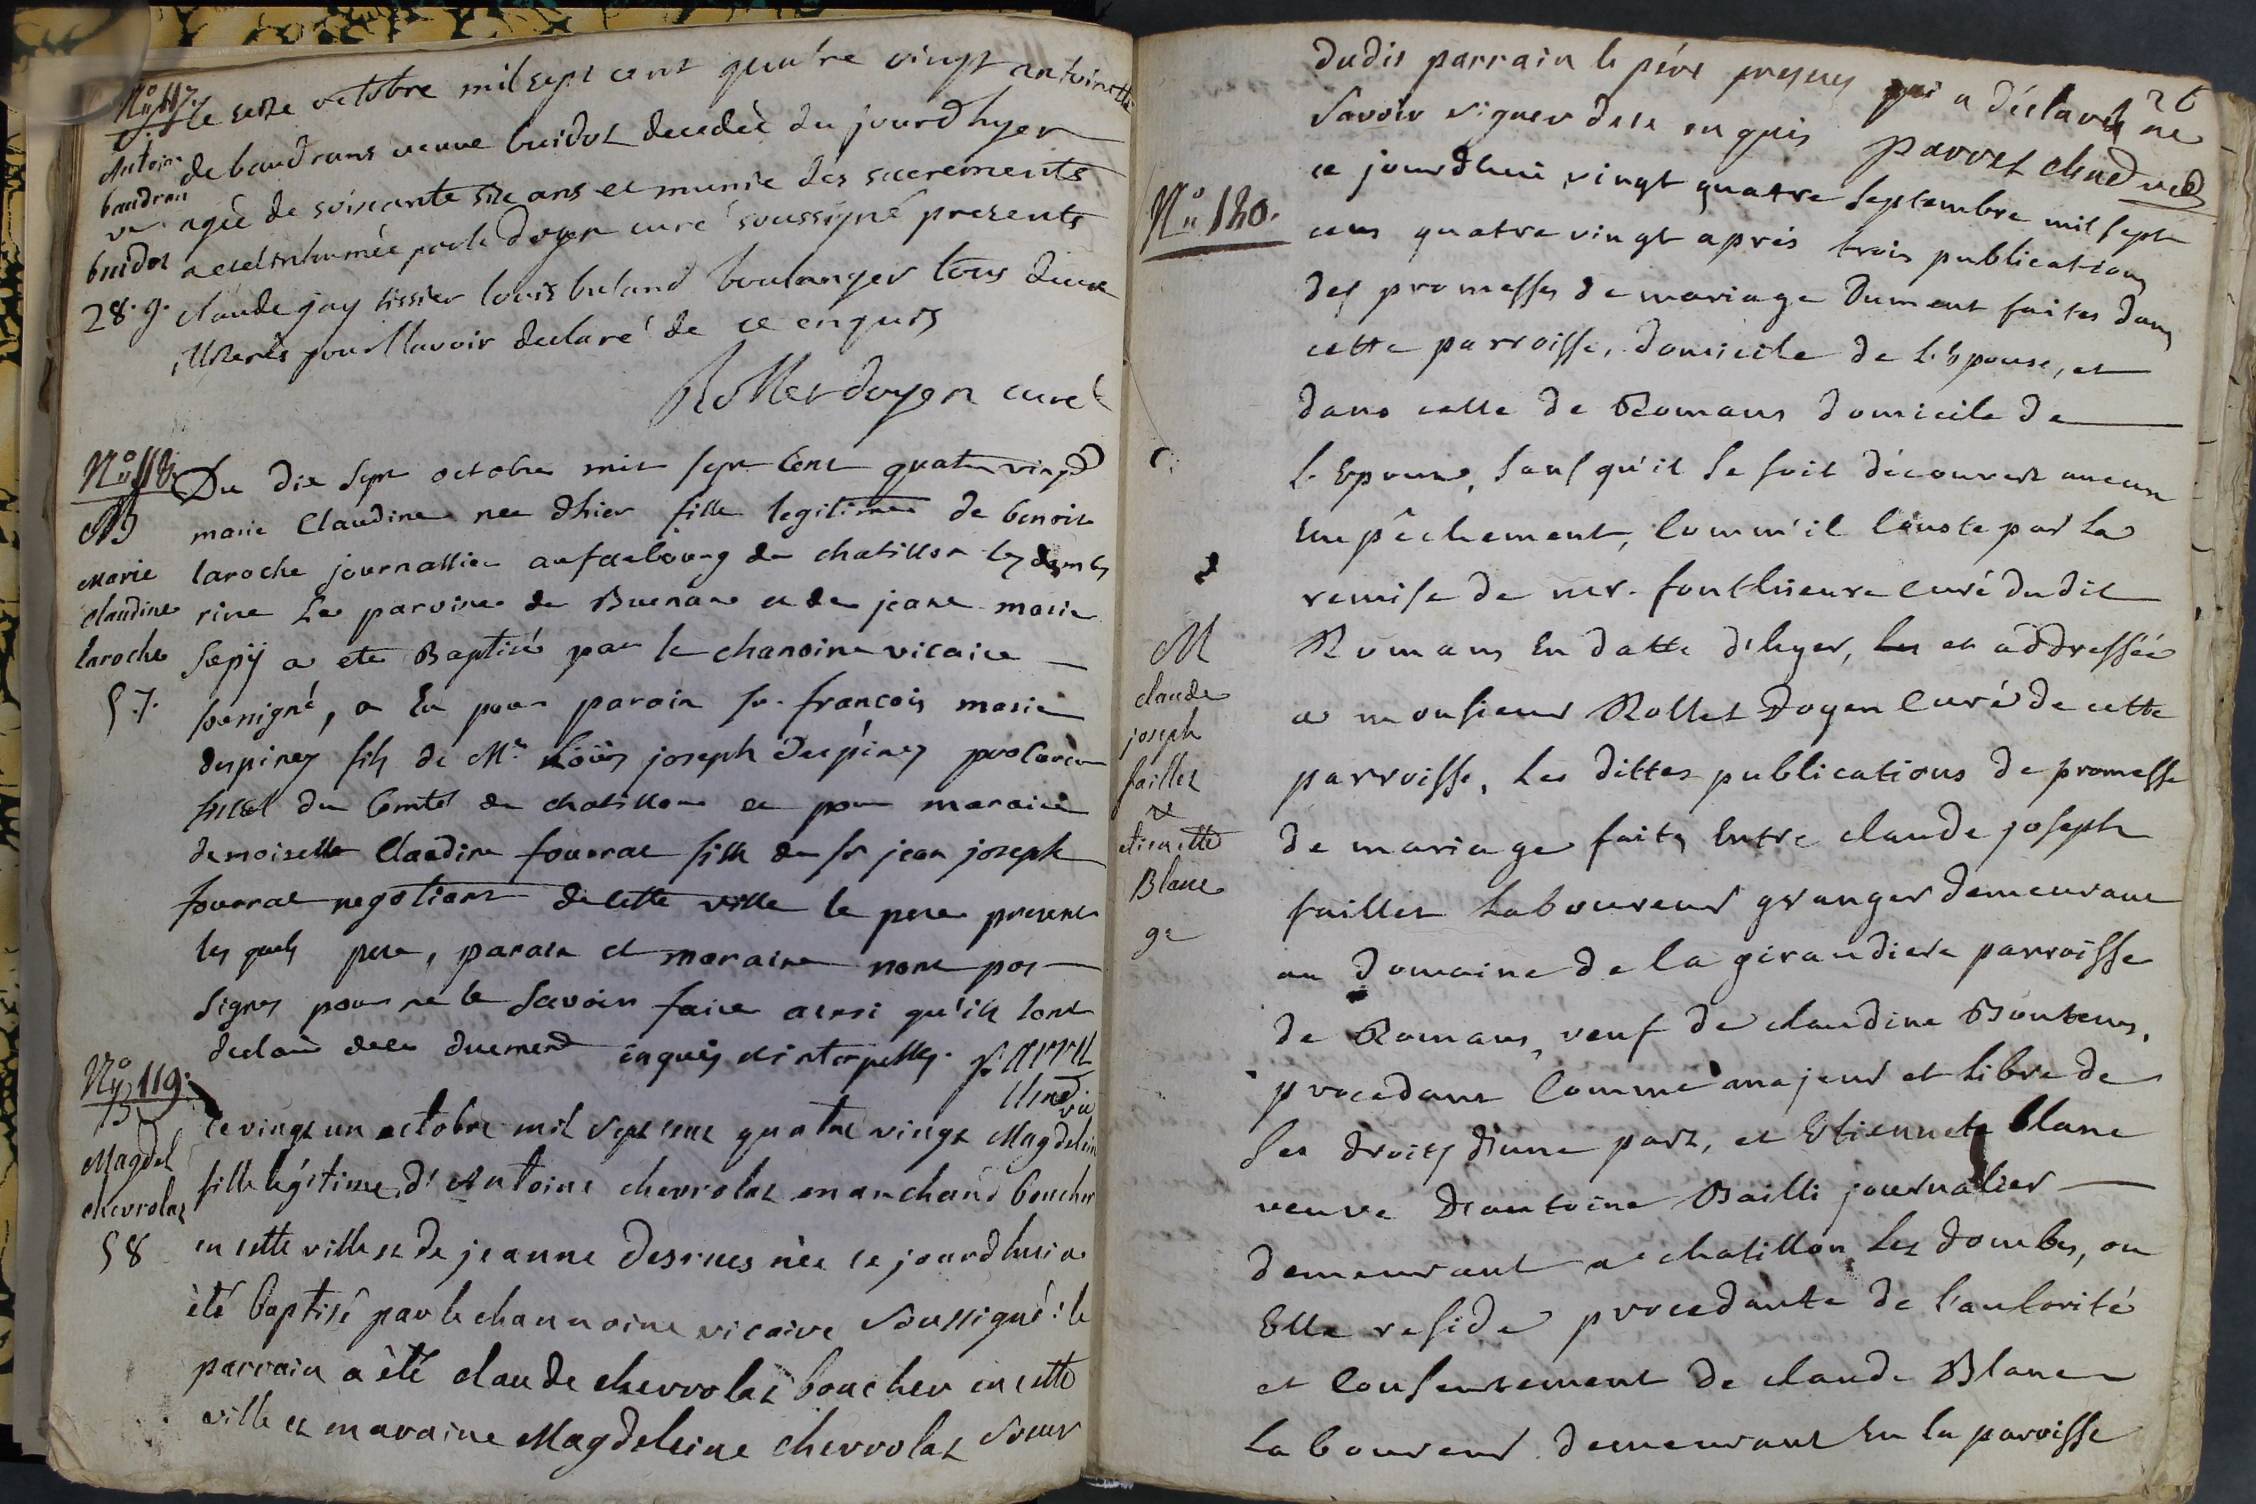 N° 117.
Antoin.
baudran
ve
buidot
28. g.
Le seize octobre mil sept cent quatre vingt antoinette
de baudrans veuve buidot decedèe du jourd hyer
agèe de soixante six ans et munie des sacrements
a eté inhumèe par le doyen curé soussigné presents
claude jay tissier louis buland boulanger tous deux
illiterès pour l'lavoir declaré de ce enquis
Rollet doyen curé
N° 118.
B
Marie
claudine
laroche
57.
Du dix sept octobre mil sept cent quatre vingt
marie Claudine nee dhier fille legitime de benoit
laroche journallier au faubourg de chatillon les dombes
rive la paroisse de Buenans et de jeane marie
Sepÿ a ete Baptisé par le chanoine vicaire
soussigné, a Eu pour parain sr. françois marie
despiney fils de Mr. Loüis joseph despiney procureur
fiscal du Comté de chatillon et pour maraine
demoiselle Claudine fourrat fille de sr jean joseph
fourrat negotiant de cette ville le pere present
les quels pere, parain et maraine nont pas
signes pour ne le scavoir faire ainsi qu'ils lont
declaré dece duement enquis et interpellés. parret
chne vic
N° 119.
B
Magdel
chevrolat
58
ce vingt un octobre mil sept cent quatre vingt Magdelein
fille légitime d'Antoine chevrolat marchand boucher
en cette ville et de jeanne Desrues née ce jourdhui a
été baptisé par le channoine vicaire soussigné: le
parrain a été claude chevrolat boucher en cette
ville et maraine Magdeleine chevrolat soeur
26
dudit parrain le pére present qui a déclaré ne
savoir signer de ce enquis parret chne vic
N° 120.
M
claude
joseph
faillet
&
etienette
Blanc
9e
ce jourdhui vingt quatre septembre mil sept
cens quatre vingt aprés trois publications
des promesses de mariage dument faites dans
cette parroisse, domicile de l'Epouse, et
dans celle de Romans domicile de
l'Epoux, sans qu'il se soit découvert aucun
Empêchement, comm'il conste par la
remise de mr. fonthieure curé dudit
Romans en datte d'hyer, et addressée
a monsieur Rollet Doyen Curé de cette
parroisse, les dittes publications de promesse
de mariage faits Entre claude joseph
faillet Laboureur granger demeurant
au Domaine de la girandiere parroisse
de Romans, veuf de claudine Bouteus,
procedant Comme majeur et libre de
ses droits d'une part, et Etiennete Blanc
veuve d'antoine Bailli journalier
demeurant a chatillon les dombes, ou
Elle reside procedante de l'autorité
et Consentement de claude Blanc
laboureur demeurant En la paroisse